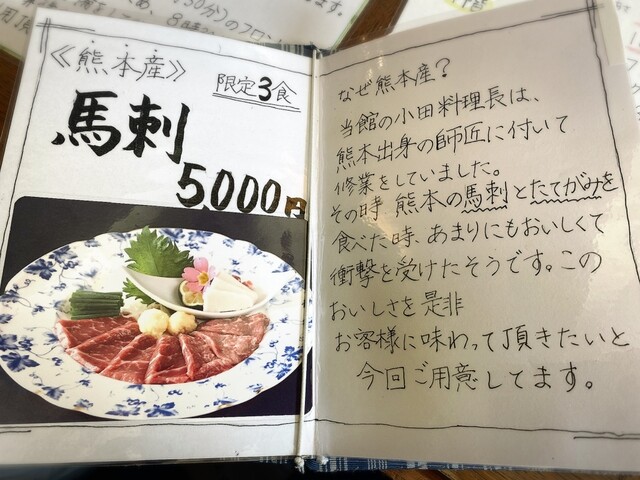 《熊本産》
限定3食
馬刺
5000円
なぜ熊本産?
当館の小田料理長は、
熊本出身の師匠に付いて
修業をしていました。
その時 熊本の馬刺とたてがみを
食べた時、あまりにもおいしくて
衝撃を受けたそうです。この
おいしさを是非
お客様に味わって頂きたいと
今回ご用意してます。